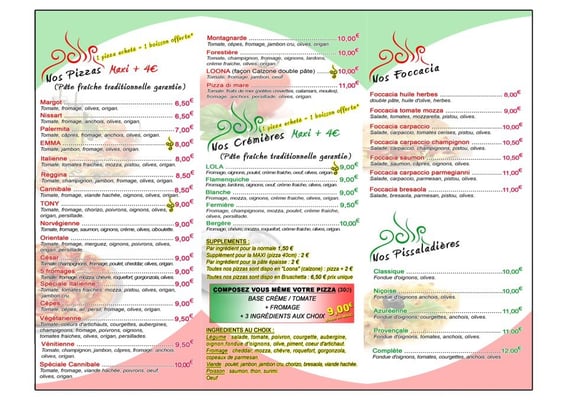 1 pizza acheté = 1 boisson offerte*
Nos Pizzas Maxi + 4€
(Pâte fraîche traditionnelle garantie)
Margot 6,50€
Tomate, fromage, olives, origan.
Nissart 6,50€
Tomate, fromage, anchois, olives, origan.
Palermita 7,50€
Tomate, câpres, fromage, anchois, olives, origan.
EMMA 8,00€
Tomate, fromage, jambon, olives, origan.
Italienne 8,50€
Tomate, tomates fraîches, mozza, pistou, olives, origan.
Reggina 8,50€
Tomate, champignon, jambon, fromage, olives, origan.
Cannibale 9,00€
Tomate, fromage, viande hachée, oignons, olives, origan.
TONY 9,00€
Tomate, fromage, chorizo, poivrons, oignons, olives, origan, persillade.
Norvégienne 9,00€
Tomate, fromage, saumon, oignons, crème, olives, ciboulette.
Orientale 9,00€
Tomate, fromage, merguez, oignons, poivrons, olives, origan.
César 9,00€
Tomate, champignons, fromage, poulet, cheddar, olives, origan.
5 fromages 9,00€
Tomate, fromage, mozza, chèvre, roquefort, gorgonzola, olives.
Spéciale italienne 9,00€
Tomate, tomates fraîches, mozza, jambon cru, pistou, olives, origan.
Cèpes 9,00€
Tomate, cèpes, ail, persil, fromage, olives, origan.
Végétarienne 9,50€
Tomate, coeurs d'artichauts, courgettes, aubergines, champignons, poivrons, oignons, fromage, olives, origan, persillade.
Vénitienne 9,50€
Tomate, champignon, jambon, câpres, fromage, anchois, olives, origan.
Spéciale Cannibale 10,00€
Tomate, fromage, viande hachée, poivrons, oeuf, olives, origan.
Montagnarde 10,00€
Tomate, cèpes, fromage, jambon cru, olives, origan
Forestière 10,00€
Tomate, champignon, fromage, oignons, lardons, crème fraîche, olives, origan.
LOONA (façon Calzone double pâte) 10,00€
Tomate, fromage, jambon, oeuf
Pizza di mare 11,00€
Tomate, fruits de mer, fromage, anchois, persillade, olives, origan.
1 pizza acheté = 1 boisson offerte*
Nos Crémières Maxi + 4€
(Pâte fraîche traditionnelle garantie)
LOLA 9,00€
Fromage, oignons, poulet, crème fraîche, olives, origan.
Flamenquiche 9,00€
Fromage, lardons, oignons, crème fraîche, oeuf, olives, origan.
Blanche 9,00€
Fromage, mozza, oignons, crème fraîche, olives, origan.
Fermière 9,50€
Fromage, champignons, mozza, poulet, crème fraîche, olives, origan.
Bergère 10,00€
Fromage, chèvre, mozza, roquefort, crème fraîche, olives, origan.
SUPPLEMENTS :
Par ingrédient pour la normale 1,50 €
Supplément pour la MAXI (pizza 40cm) : 2 €
Par ingrédient pour la pâte épaisse : 2 €
Toutes nos pizzas sont dispo en "Loona" (calzone) : pizza + 2€
Toutes nos pizzas sont dispo en Bruschetta : 6,50 € prix unique
COMPOSEZ VOUS MÊME VOTRE PIZZA (30©)
BASE CRÈME / TOMATE
+ FROMAGE
+ 3 INGRÉDIENTS AU CHOIX
9,00€
INGREDIENTS AU CHOIX :
Légume : salade, tomate, poivron, courgette, aubergine, oignon fondue d'oignons, olive, piment, coeur d'artichaut.
Fromage : cheddar, mozza, chèvre, roquefort, gorgonzola, copeaux de parmesan
Viande : poulet, jambon, jambon cru, chorizo, bresaola, viande hachée.
Poisson : saumon, thon, surimi
Oeuf
Nos Foccacia
Foccacia huile herbes 8,00€
double pâte, huile d'olive, herbes.
Foccacia tomate mozza 9,00€
Salade, tomates, mozza, pistou, olives.
Foccacia carpaccio 10,00€
Salade, carpaccio, tomates cerises, pistou, olives.
Foccacia carpaccio champignon 10,50€
Salade, carpaccio, champignons, pistou, olives.
Foccacia saumon 10,50€
Salade, saumon, câpres, oignons, olives.
Foccacia carpaccio parmegianni 11,00€
Salade, carpaccio, parmesan, pistou, olives.
Foccacia bresaola 11,00€
Salade, bresaola, parmesan, pistou, olives.
Nos Pissaladières
Classique 10,00€
Fondue d'oignons, olives.
Niçoise 10,00€
Fondue d'oignons, anchois, olives.
Azuréenne 11,00€
Fondue d'oignons, anchois, olives.
Provençale 11,00€
Fondue d'oignons, tomates, olives.
Complète 12,00€
Fondue d'oignons, tomates, anchois, olives.